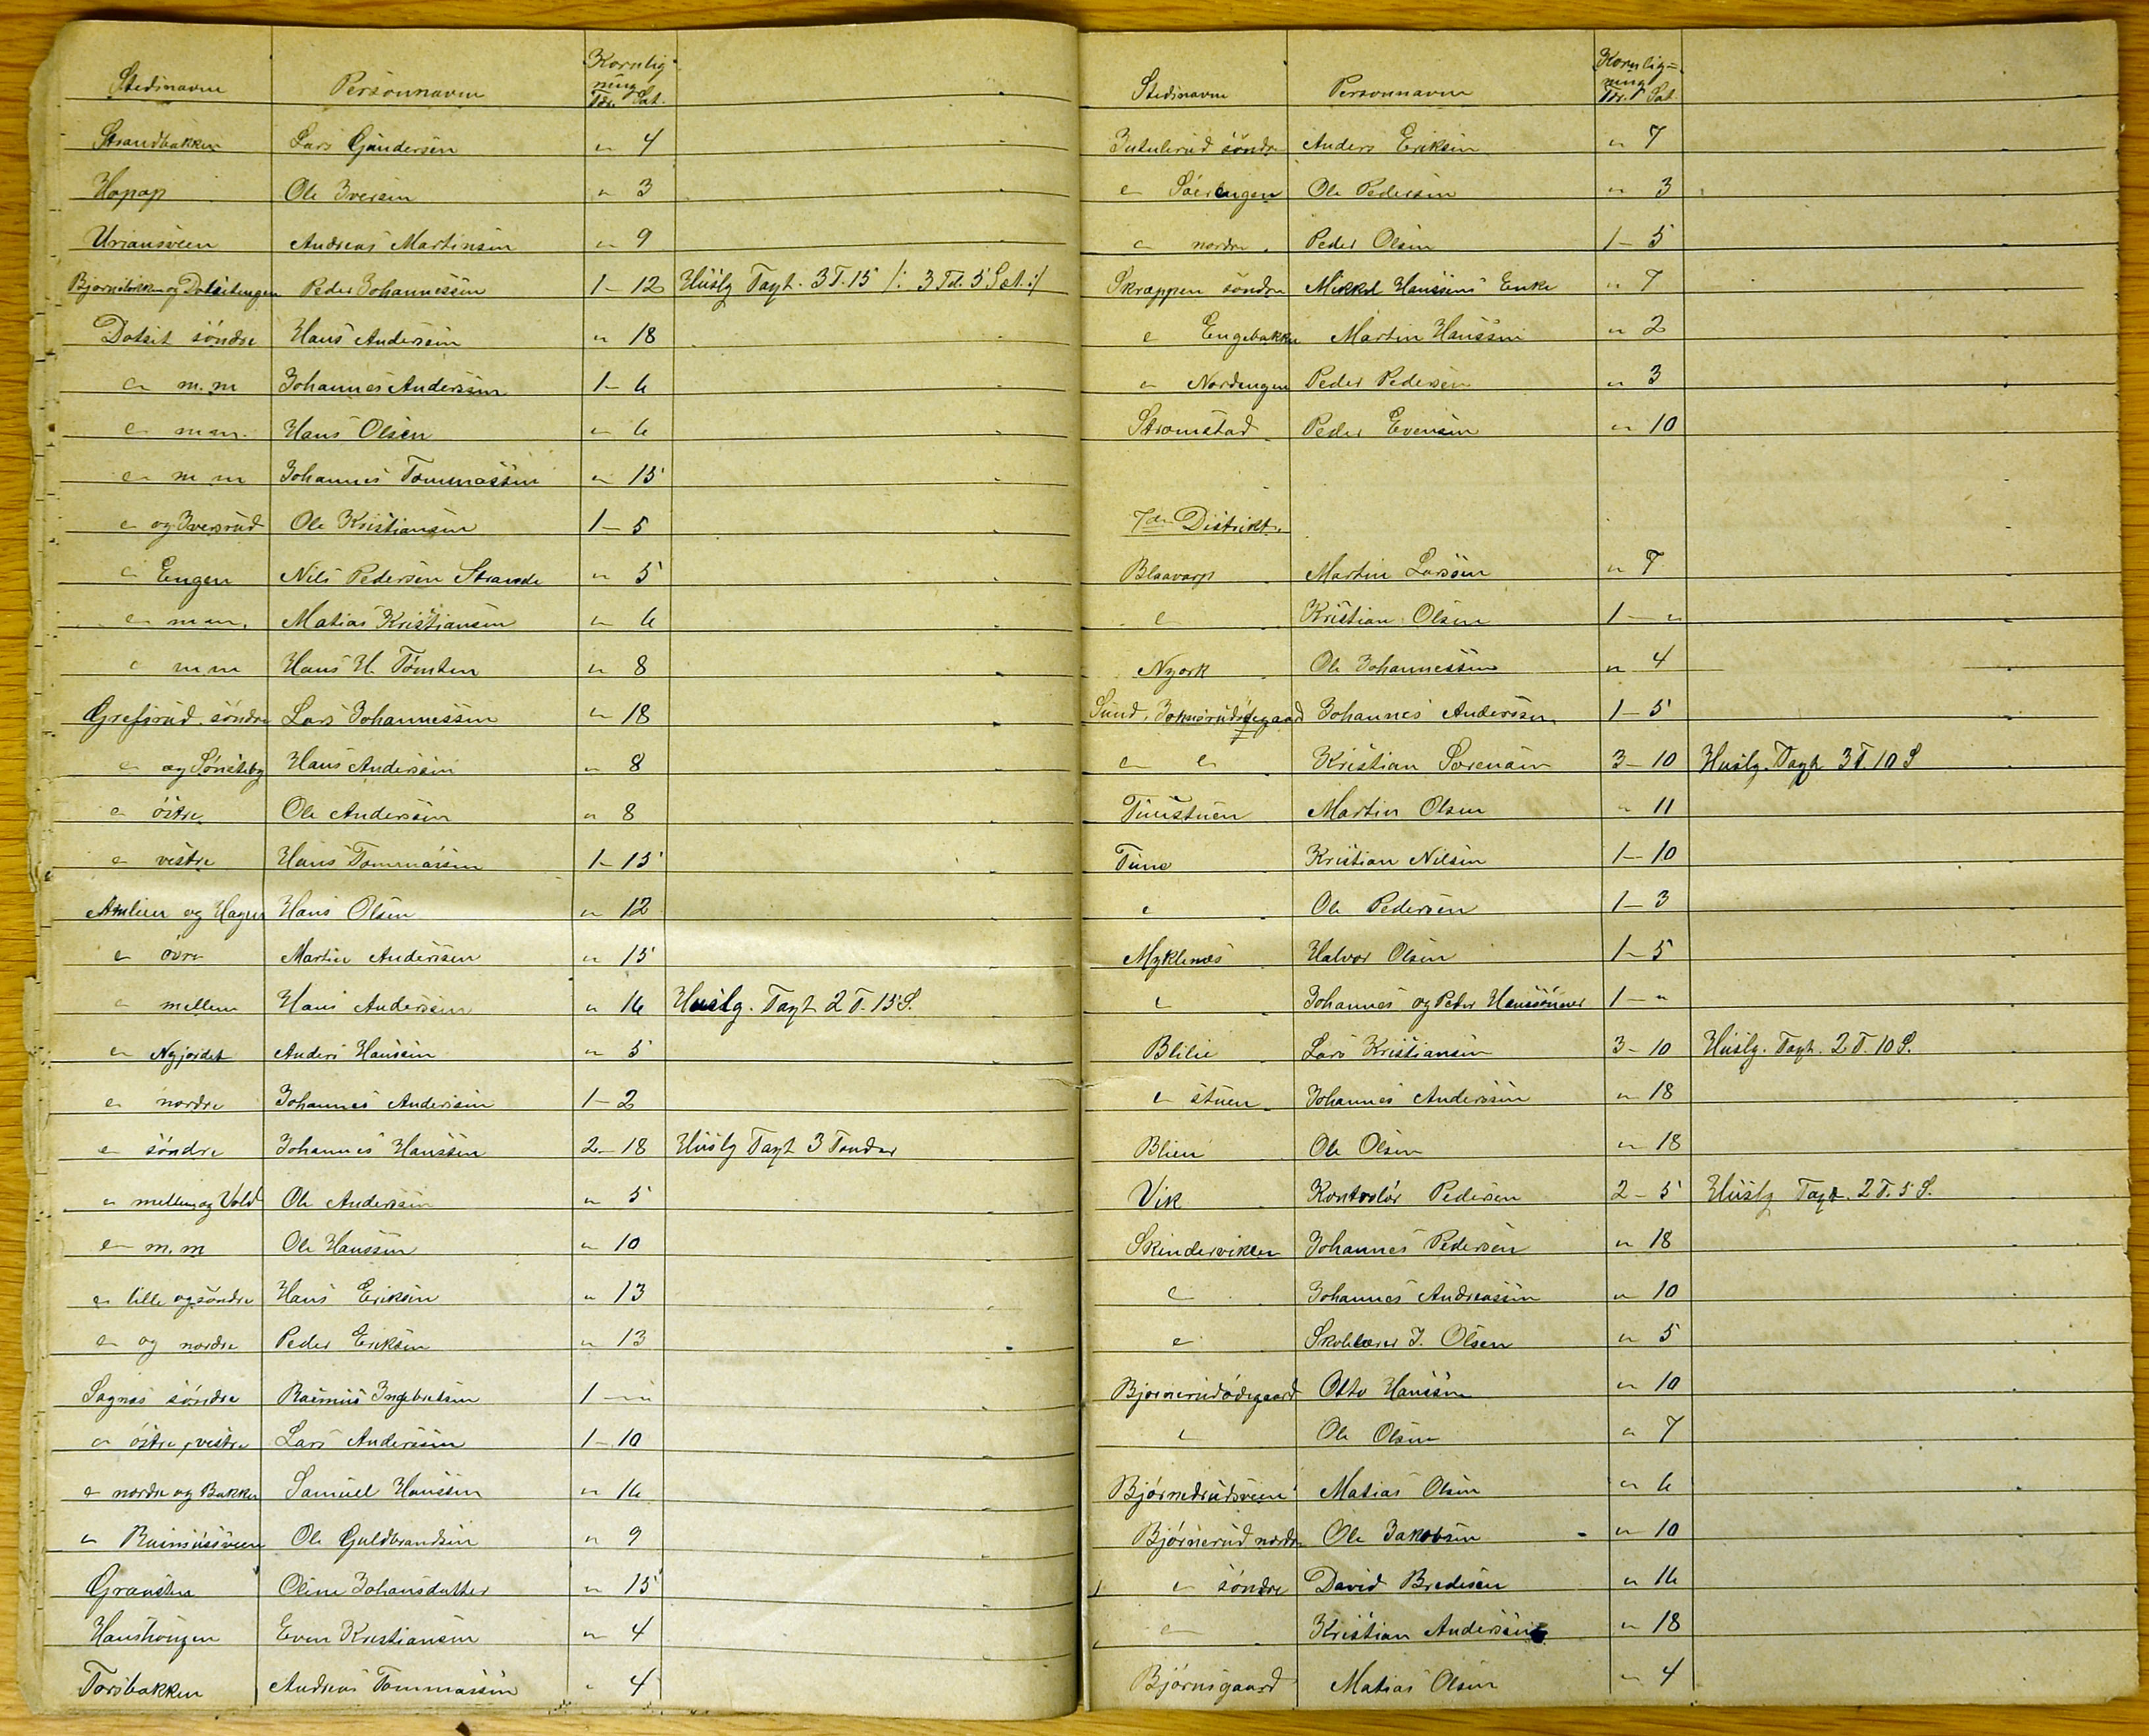 Stedsnavn Personnavn Kornligning Tdr. Sæt.
Strandbakken Lars Gundersen " 4
Hopop Ole Iversen " 3
Uriansveen Andreas Martinsen " 9
Peder Johannessen 1 – 12 Huslg Tagt. 3 T. 15 /: 3 Td. 5 Sæt. :/
Dotset söndre Hans Andersen " 18
" m. m Johannes Anderssen 1 – 6
" m m. Hans Olsen " 6
" m m Johannes Tommassen " 15
" og Iversrud Ole Kristiansen 1 – 5
" Engen Nils Pedersen Strande " 5
" m m. Matias Kristiansen " 6
" m m Hans H. Tömten " 8
Grefsrud söndre Lars Johannessen " 18
" og Sönsteby Hans Anderssen " 8
" östre Ole Anderssen " 8
" vestre Hans Tommassen 1 – 15
Amlien og Hagen Hans Olsen " 12
" övre Martin Anderssen " 15
" mellem Hans Anderssen " 16 Huslg. Tagt 2 T. 15 S.
" Nyjordet Anders Hanssen " 5
" nordre Johannes Anderssen 1 – 2
" söndre Johannes Hanssen 2 – 18 Huslg Tagt 3 Tønder
" mellem og Vold Ole Anderssen " 5
" m. m Ole Hanssen " 10
" lille og söndre Hans Eriksen " 13
" og nordre Peder Eriksen " 13
Sagnæs söndre Rasmus Ingebretsen 1 – "
" östre, vestre Lars Anderssen 1 – 10
" nordre og Bakken Samuel Hanssen " 16
" Rasmussveen Ole Guldbrandsen " 9
Oline Johansdatter " 15
Even Kristiansen " 4
Torsbakken Andreas Tommassen " 4
Stedsnavn Personnavn Kornligning Tdr. Sæt.
Jutulsrud söndre Anders Eriksen " 7
" Ole Pedersen " 3
" nordre Peder Olsen 1 – 5
Skræppen söndre Mikkel Hanssens Enke " 7
" Engebakken Martin Hanssen " 2
" Nordengen Peder Pedersen " 3
Strømstad Peder Evensen " 10
7de Distrikt.
Blaavarp Martin Larssen " 7
" Kristian Olsen 1 – "
Nyork Ole Johannessen " 4
Sund, ødegaard Johannes Anderssen 1 – 5
" " Kristian Sørensen 3 – 10 Huslg. Tagt 3 T. 10 S
Tunstuen Martin Olsen " 11
Tune Kristian Nilsen 1 – 10
" Ole Pedersen 1 – 3
Myklenæs Halvor Olsen 1 – 5
" Johannes og Peder Hanssönner 1 – "
Blilie Lars Kristiansen 3 – 10 Huslg. Tagt. 2 T. 10 S.
" stuen Johannes Anderssen " 18
Blien Ole Olsen " 18
Vik Kontrolör Pedersen 2 – 5 Huslg Tagt. 2 T. 5 S.
Skindervikken Johannes Pedersen " 18
" Johannes Andreassen " 10
" Skolelærer J. Olsen " 5
Bjørnerudödegaard Otto Hanssen " 10
" Ole Olsen " 7
Bjørnerudsveen Matias Olsen " 6
Bjørnerud nordre Ole Jakobsen " 10
" söndre David Bredesen " 16
" Kristian Anderssen " 18
Bjørnsgaard Matias Olsen " 4